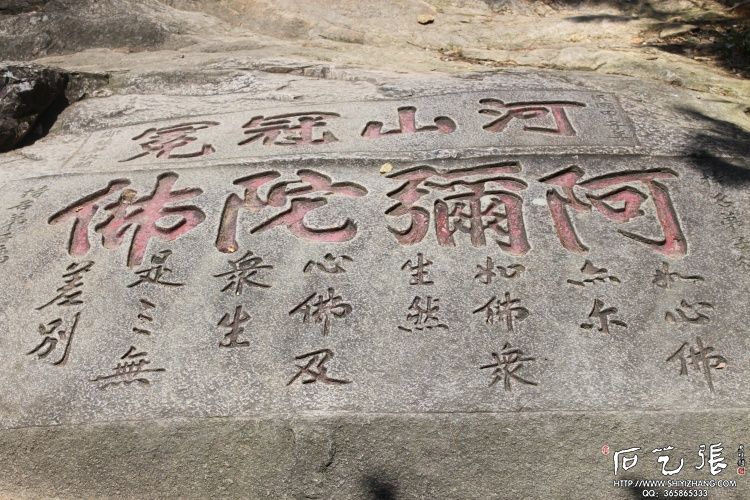 河山冠冕
阿彌陀佛
如心佛
亦尔
如佛眾
生然
心佛及
眾生
是三無
差別
石艺張
HTTP://WWW.SHIYIZHANG.COM
QQ: 365865333